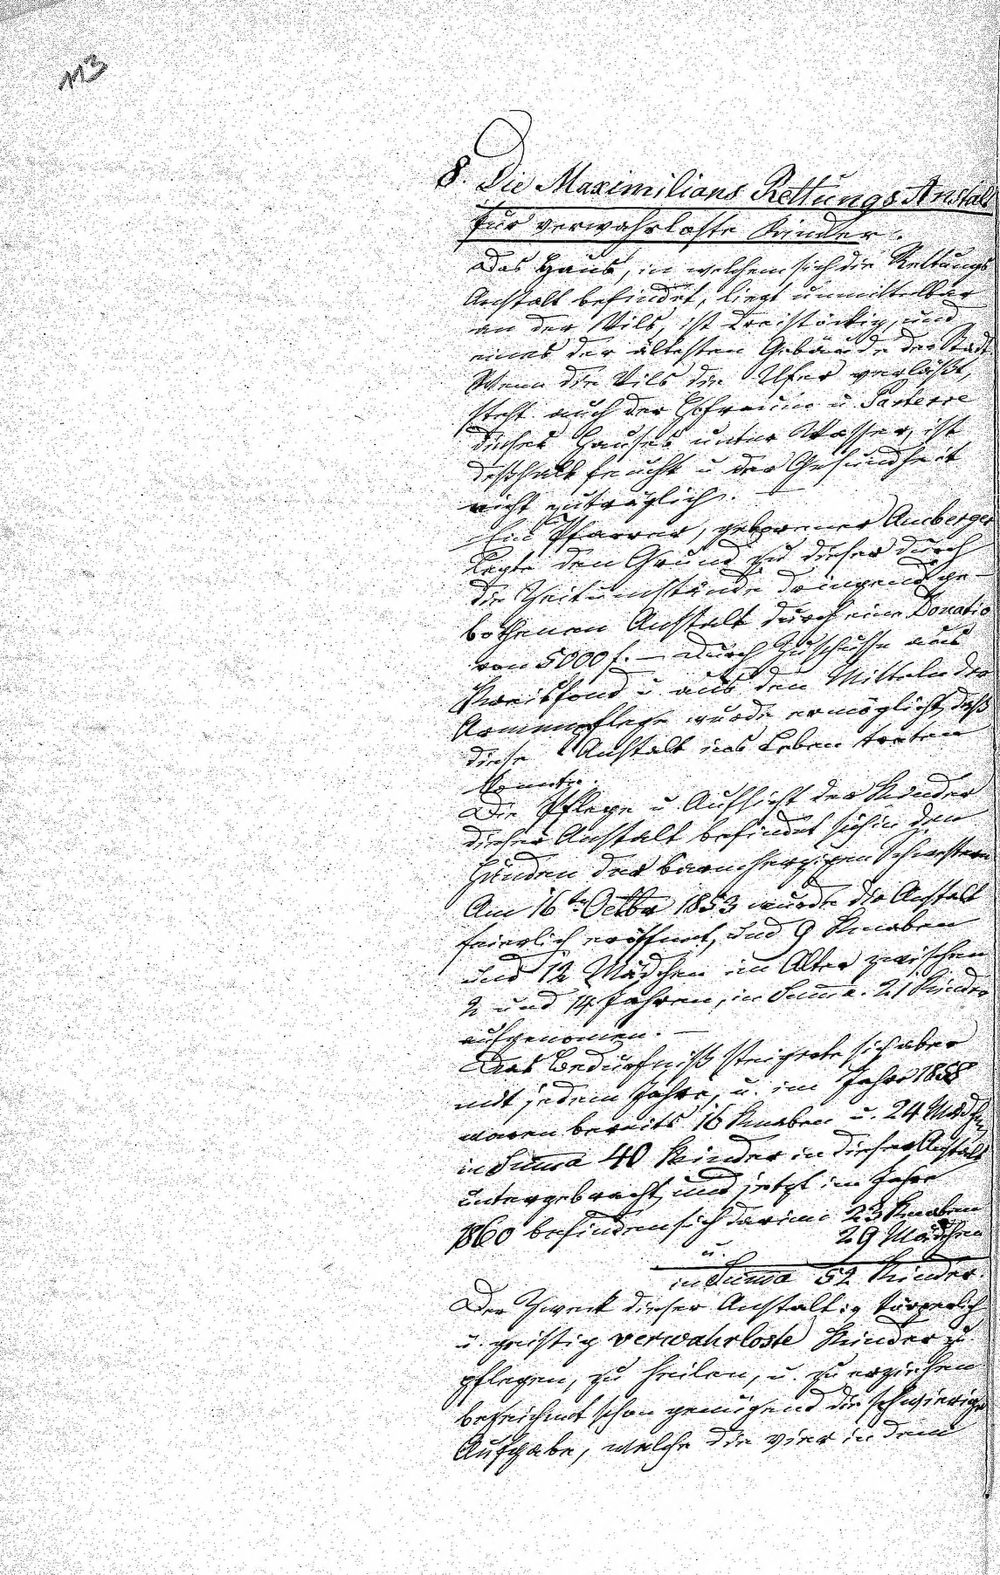 113
8. Die Maximilians Rettungs Anstalt
für verwahrloste Kinder.
Das Haus, in welchem sich die Rettungs
Anstalt befindet, liegt unmittelbar
an der Vils, ist dreistöckig, und
eines der ältesten Gebäude der Stadt
Wenn die Vils die Ufer verläßt,
steht auch der Hofraum u. Parterre
dieses Hauses unter Wasser, ist
deßhalb feucht u der Gesundheit
nicht zuträglich. —
Ein Pfarrer, geborener Amberger
legte den Grund zu dieser durch
die Zeitumstände dringend ge-
bothenen Anstalt durch eine Donatio
von 5000 f. — Durch Zuschüsse aus
Kreisfond u. aus den Mitteln der
Armenpflege wurde ermöglicht, daß
diese Anstalt ins Leben treten
konnte.
Die Pflege u Aufsicht der Kinder
dieser Anstalt befindet sich in den
Händen der barmherzigen Schwestern
Am 16ten Octbr 1853 wurde die Anstalt
feierlich eröffnet, und 9 Knaben
und 12 Mädchen im Alter zwischen
2 und 14 Jahren, in Suma 21 Kinder
aufgenomen. —
Das Bedürfniß steigerte sich aber
mit jedem Jahre, u. im Jahre 1858
waren bereits 16 Knaben u. 24 Mädchen
in Suma 40 Kinder in dieser Anstalt
untergebracht, und jetzt im Jahre
1860 befinden sich darinn 23 Knaben
u. 29 Mädchen
in Suma 52 Kinder.
Der Zweck dieser Anstalt: körperlich
u. geistig verwahrloste Kinder zu
pflegen, zu heilen, u. zu erziehen
bezeichnet schon genügend die schwierige
Aufgabe, welche die vier in dem